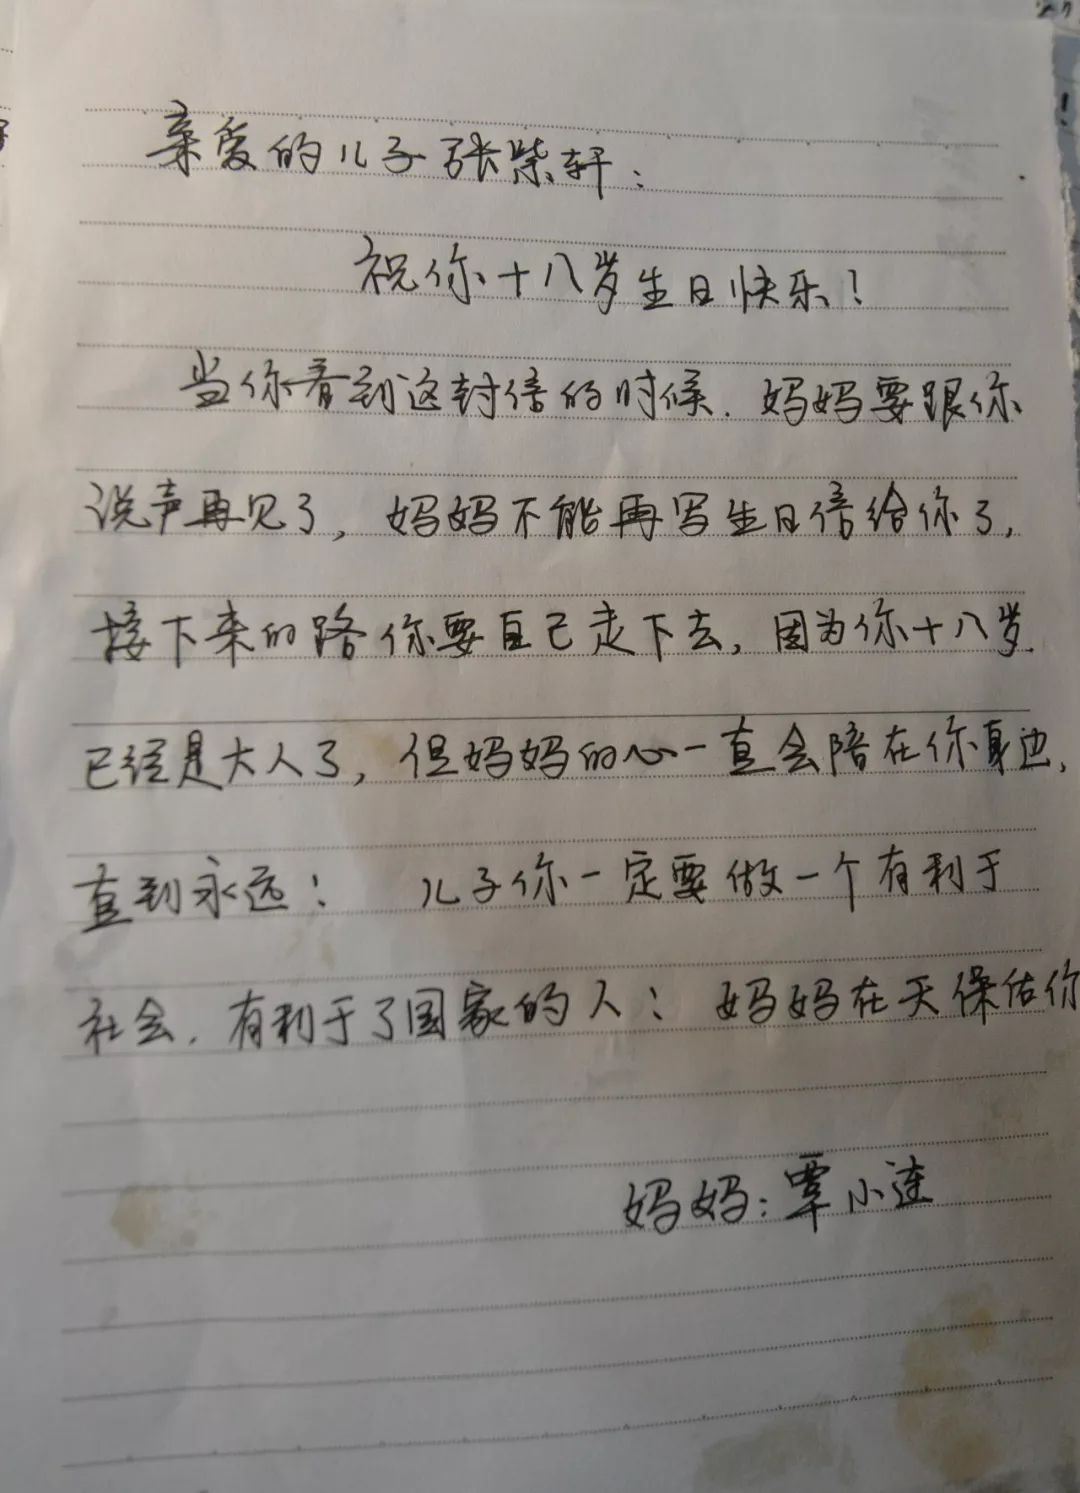 亲爱的儿子张柴轩：
祝你十八岁生日快乐！
当你看到这封信的时候．妈妈要跟你
说声再见了，妈妈不能再写生日信给你了，
接下来的路你要自己走下去，因为你十八岁．
已经是大人了，但妈妈的心一直会陪在你身边，
直到永远！ 儿子你一定要做一个有利于
社会．有利于了国家的人： 妈妈在天保佑你
妈妈：覃小连